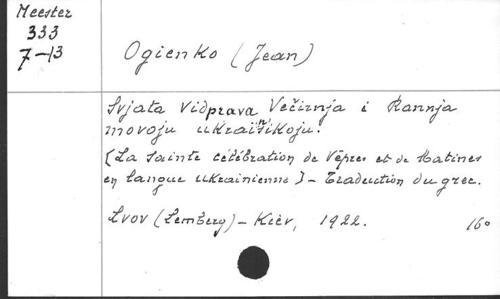 Meester
333
7-13
Ogienko (Jean)
Svjata Vidprava Večirnja i Rannja
movoju ukraïnśikoju.
(La sainte célébration de Vêpres et de Matines
en langue ukrainienne) - Traduction du grec.
Lvov (Lemberg) - Kiev, 1922. 16º